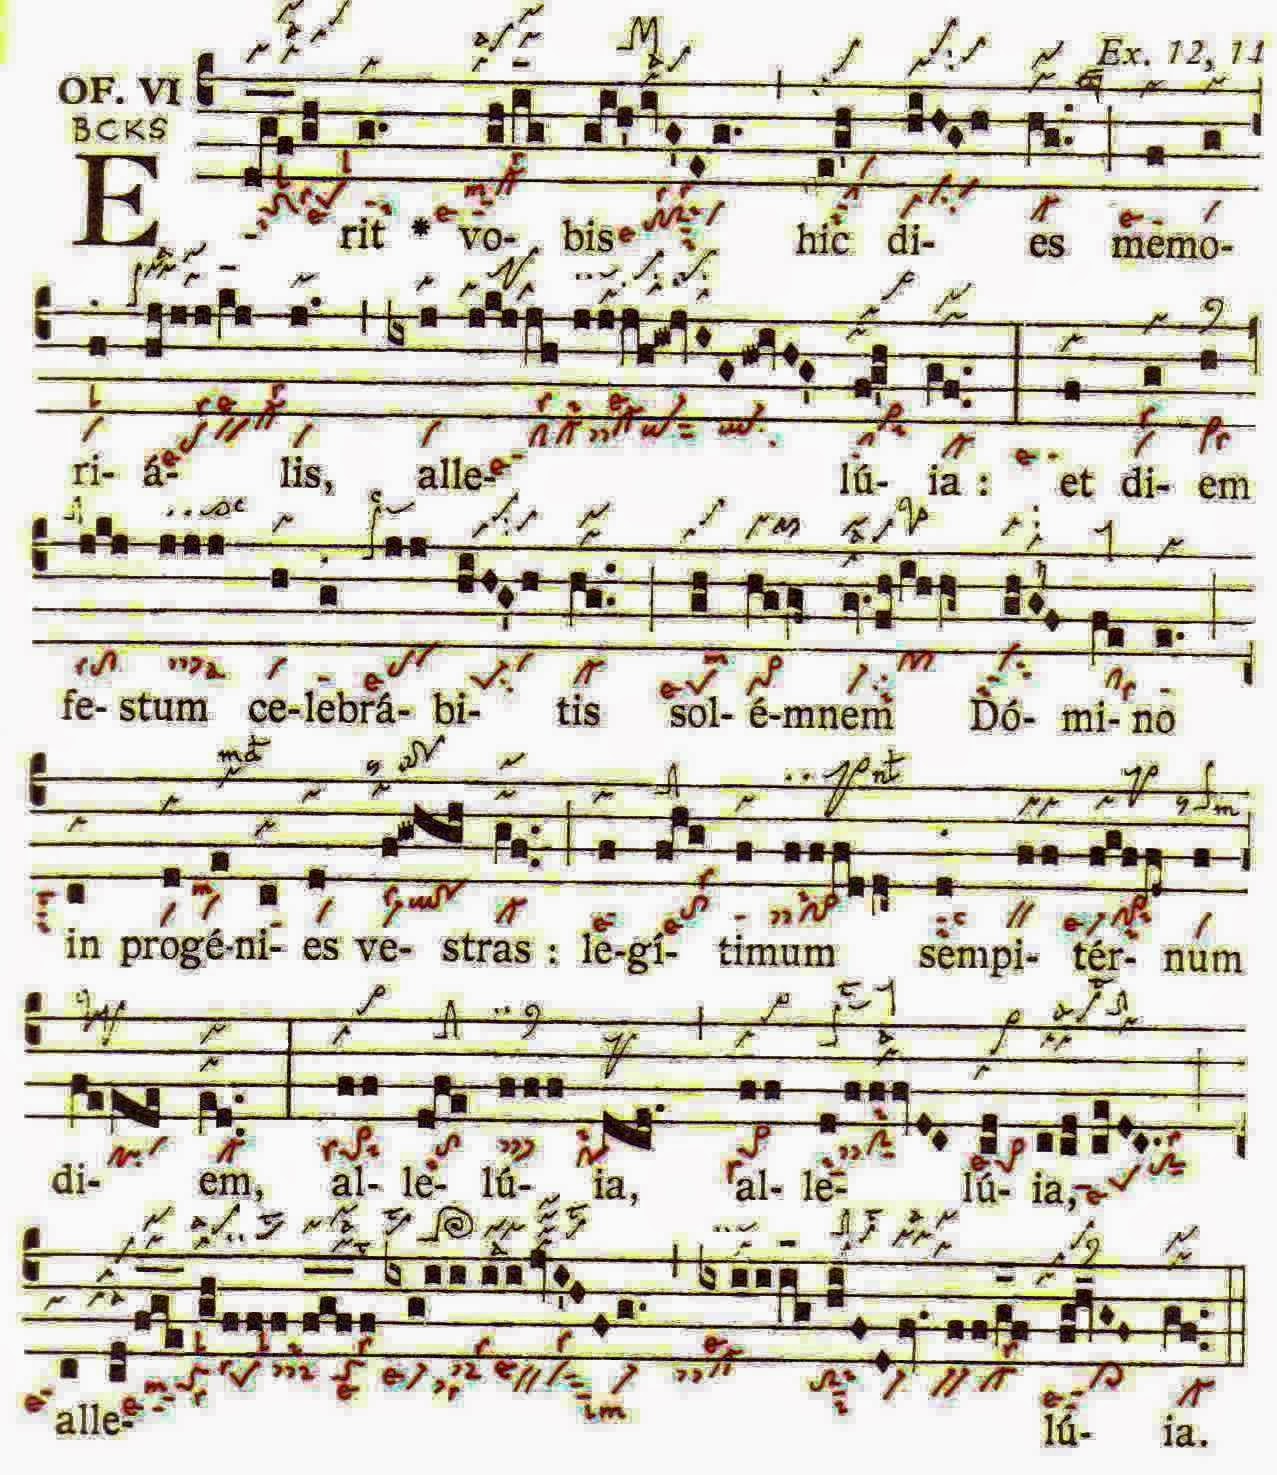 Ex. 12, 14
OF. VI
BCKS
E rit * vo- bis hic di- es memo-
ri- á- lis, alle- lú- ia : et di- em
fe- stum ce-lebrá- bi- tis sol- é-mnem Dó- mi- no
in progé-ni- es ve- stras : le-gí- timum sempi- tér- num
di- em, al- le- lú- ia, al- le- lú- ia,
alle- lú- ia.